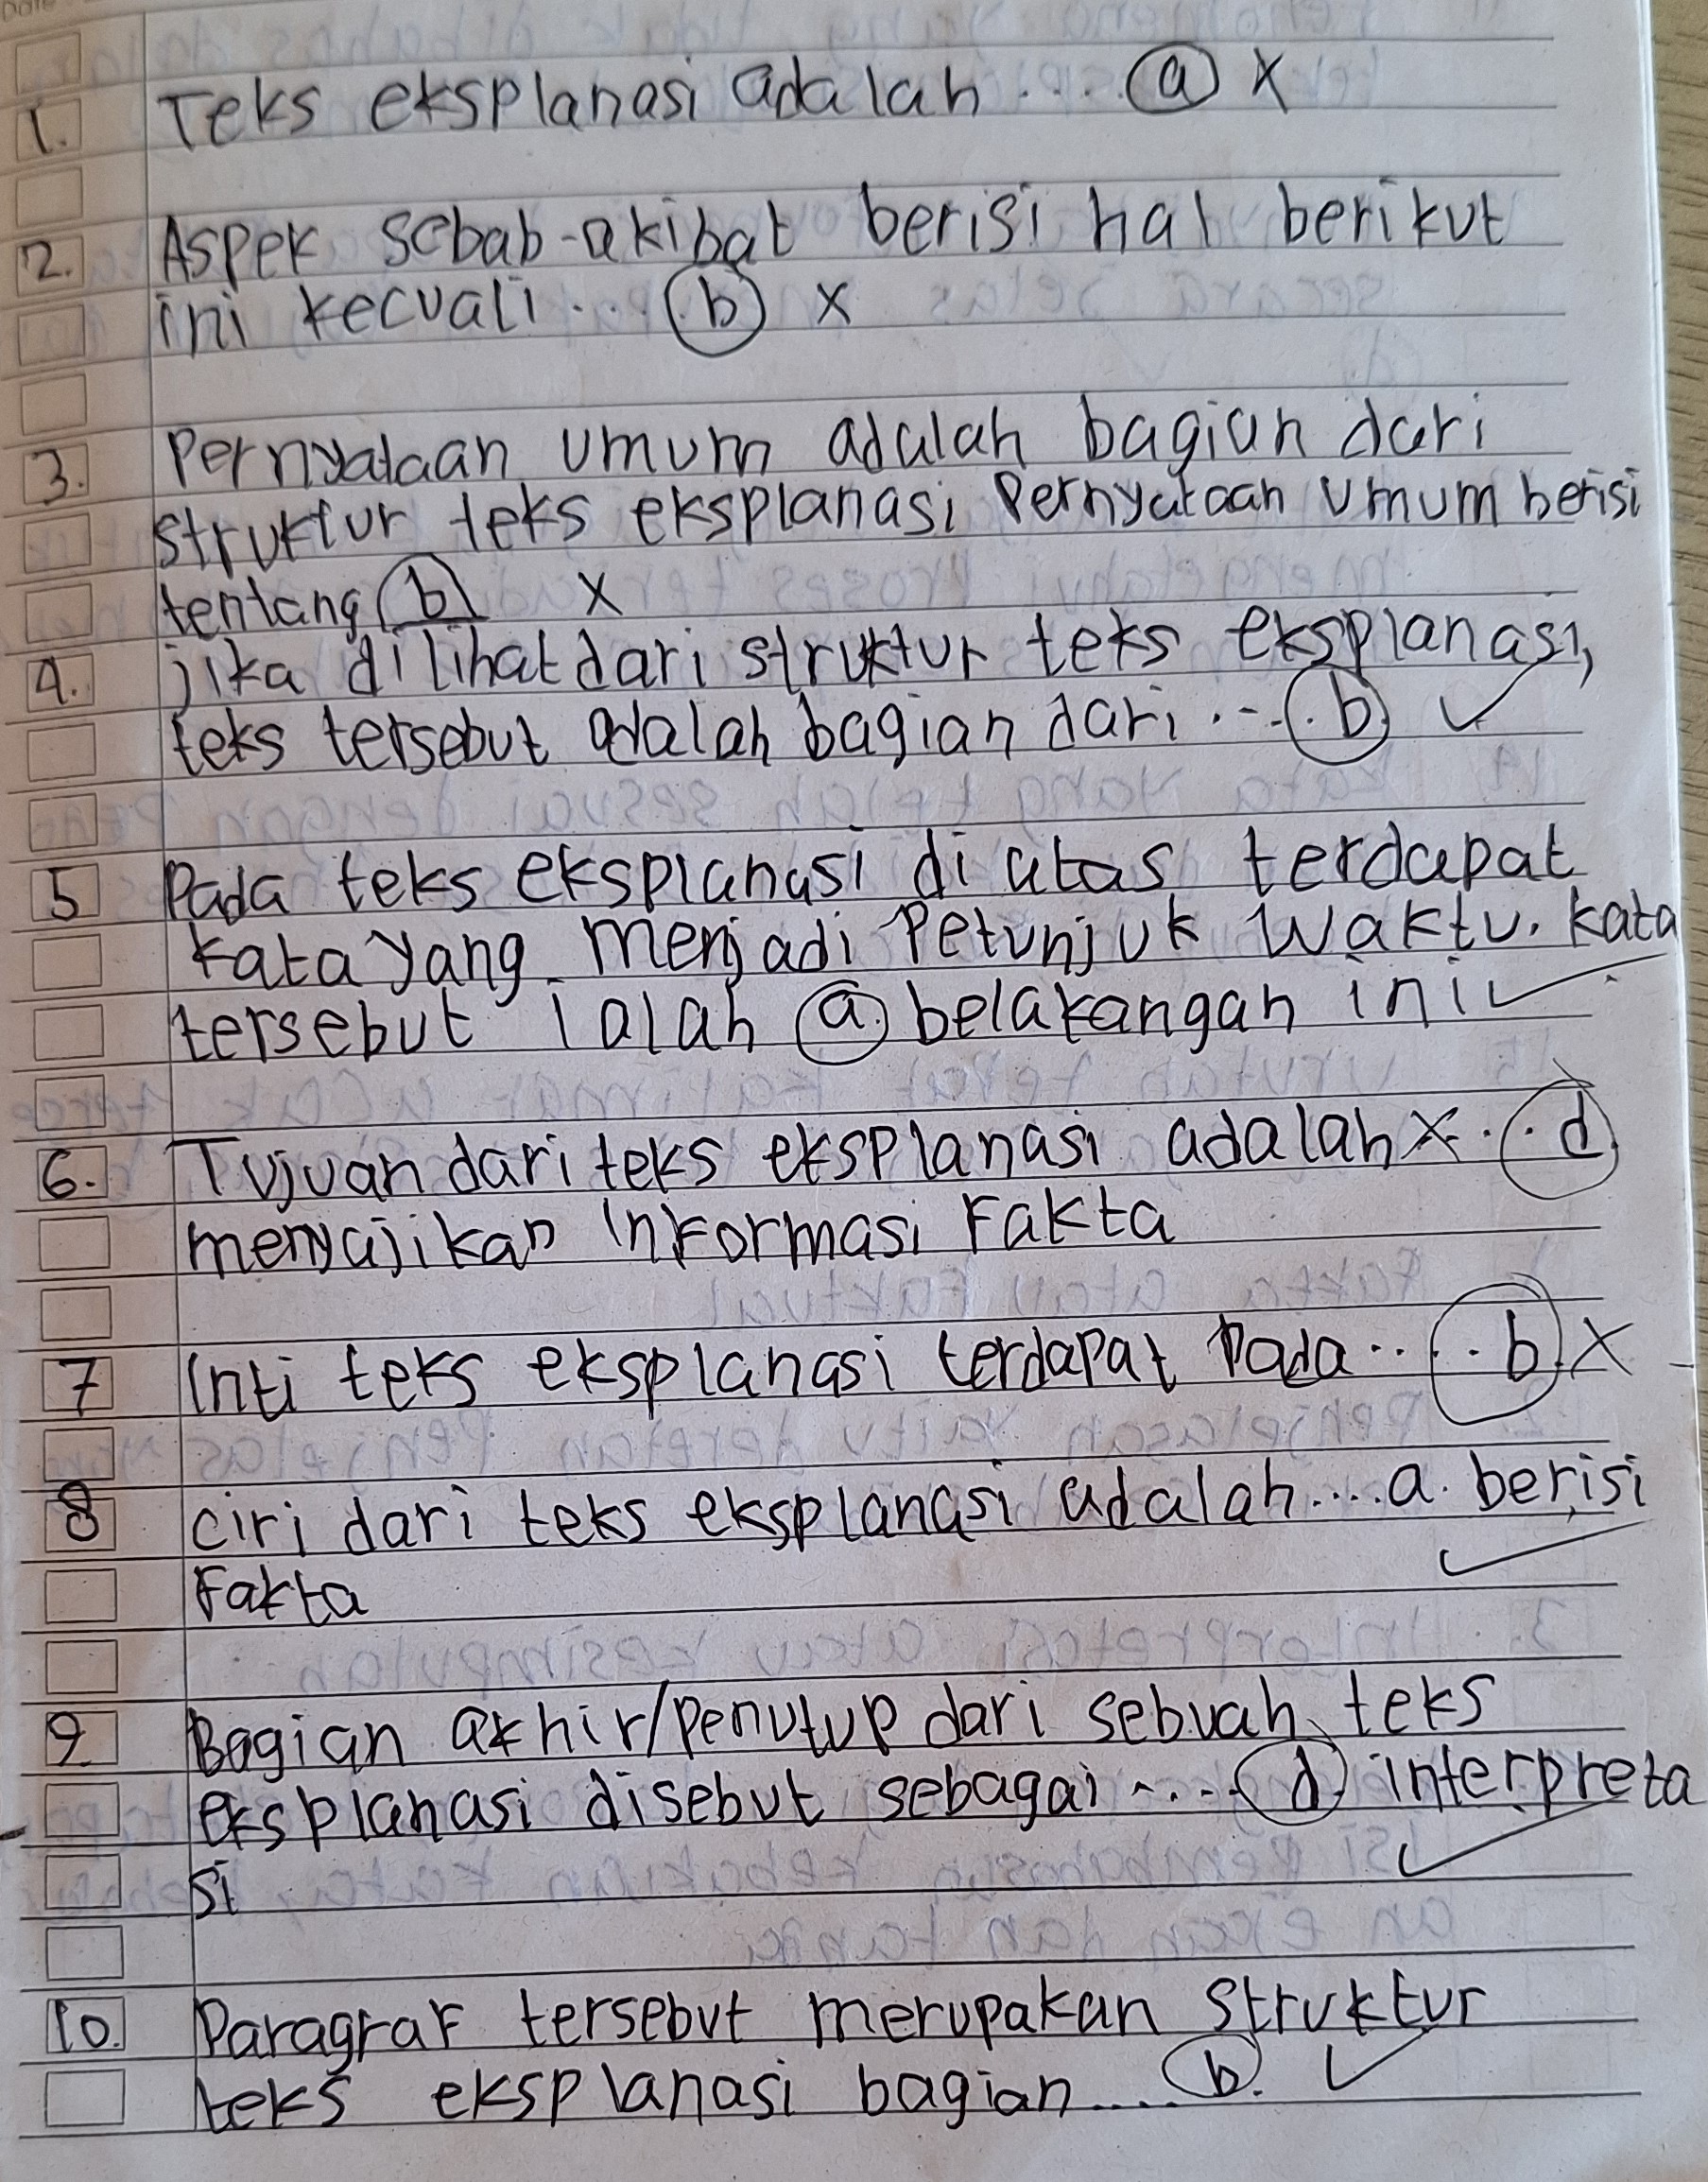 1. Teks eksplanasi adalah .... a X
2. Aspek sebab-akibat berisi hal berikut
ini kecuali... b X
3. Pernyataan umum adalah bagian dari
struktur teks eksplanasi Pernyataan umum berisi
tentang b X
4. jika dilihat dari struktur teks eksplanasi,
teks tersebut adalah bagian dari .... b. ✓
5 Pada teks eksplanasi di atas terdapat
kata yang menjadi Petunjuk Waktu. kata
tersebut ialah a. belakangan ini ✓
6. Tujuan dari teks eksplanasi adalah X .. d.
menyajikan informasi Fakta
7 Inti teks eksplanasi terdapat Pada .... b. X
8 ciri dari teks eksplanasi adalah .... a. berisi
Fakta ✓
9. Bagian akhir/penutup dari sebuah teks
eksplanasi disebut sebagai .... d. interpreta
si ✓
10. Paragraf tersebut merupakan struktur
teks eksplanasi bagian .... b. ✓